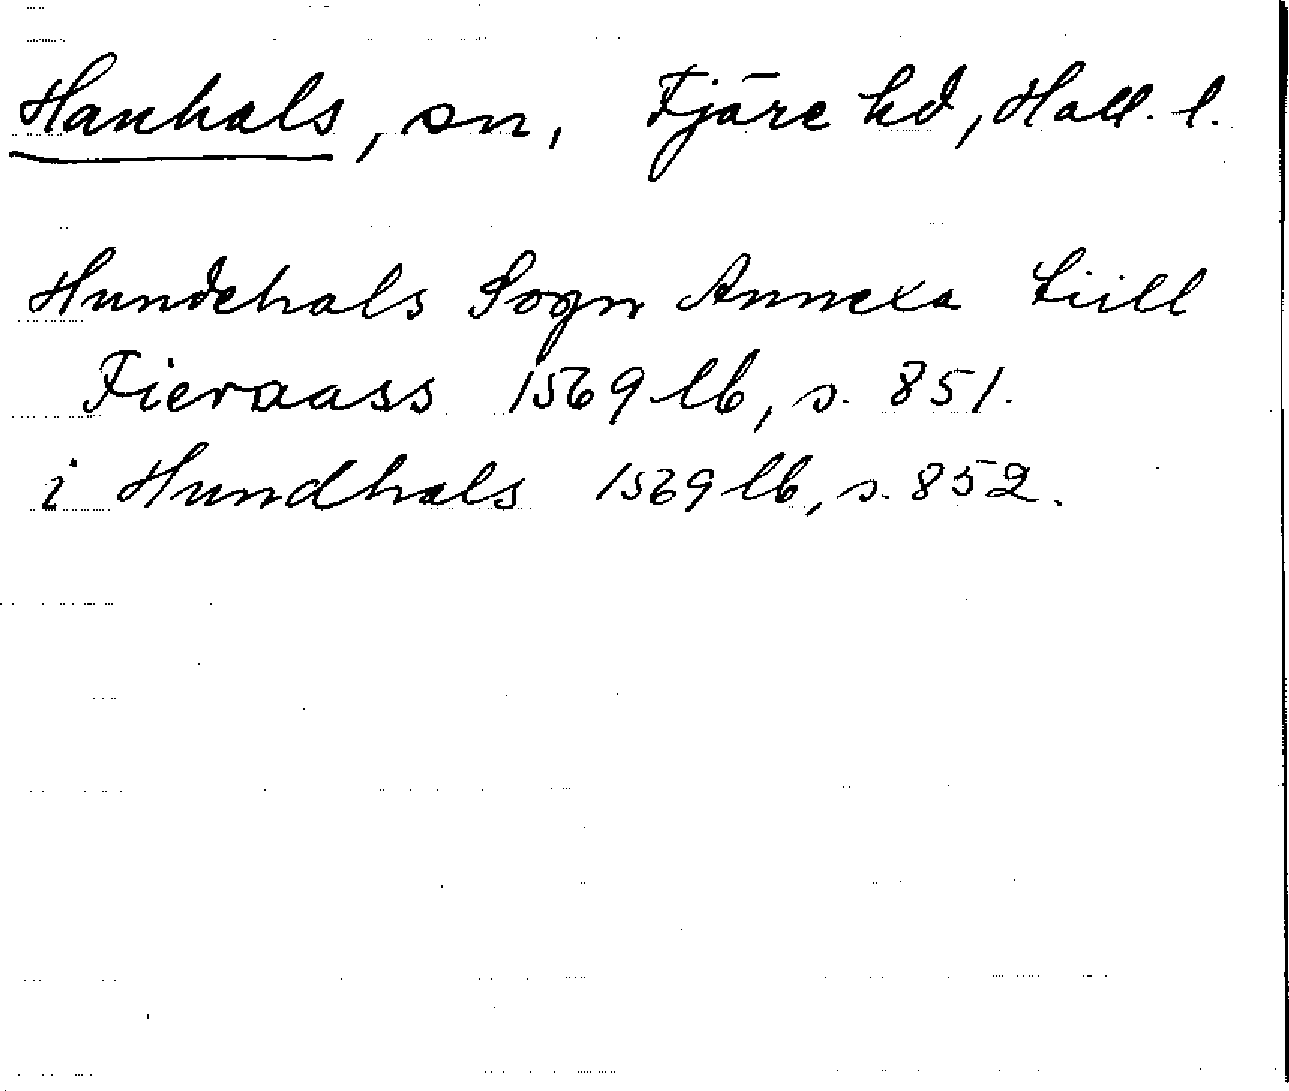 Hanhals, sn, Fjäre hd, Hall. l.
Hundehals Sogn Annexa tiill
Fieraass 1569 lb, s. 851.
i Hundhals 1569 lb, s. 852.